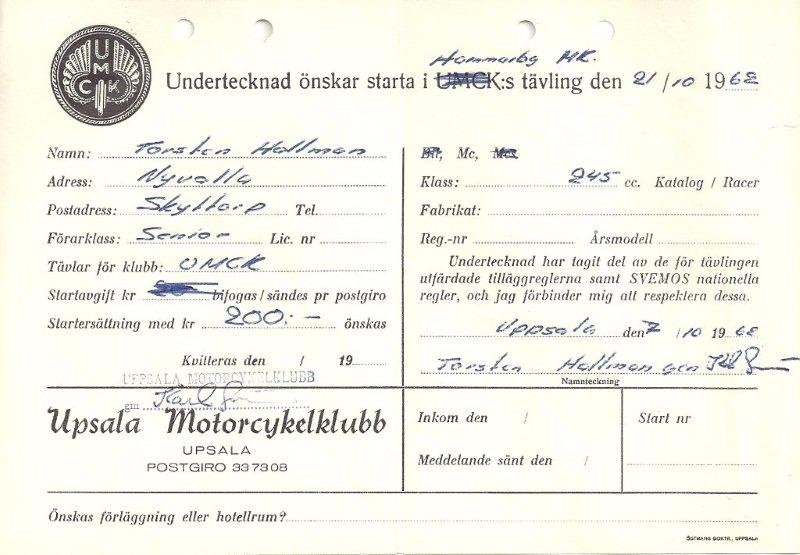 UMCK
Hammarby MK.
Undertecknad önskar starta i UMCK:s tävling den 21/10 1962
Namn: Torsten Hallman
Adress: Nyvalla
Postadress: Skyttorp Tel.
Förarklass: Senior Lic. nr
Tävlar för klubb: UMCK
Startavgift kr bifogas/sändes pr postgiro
Startersättning med kr 200:- önskas
Kvitteras den / 19
UPPSALA MOTORCYKELKLUBB
gm Karl
Upsala Motorcykelklubb
UPSALA
POSTGIRO 337308
Bil, Mc, Mcs.
Klass: 245 cc. Katalog / Racer
Fabrikat:
Reg.-nr Årsmodell
Undertecknad har tagit del av de för tävlingen
utfärdade tilläggreglerna samt SVEMOS nationella
regler, och jag förbinder mig att respektera dessa.
Uppsala den 7/10 1962
Torsten Hallman gm
Namnteckning
Inkom den /
Meddelande sänt den /
Start nr
Önskas förläggning eller hotellrum?
ÖSTMANS BOKTR., UPPSALA